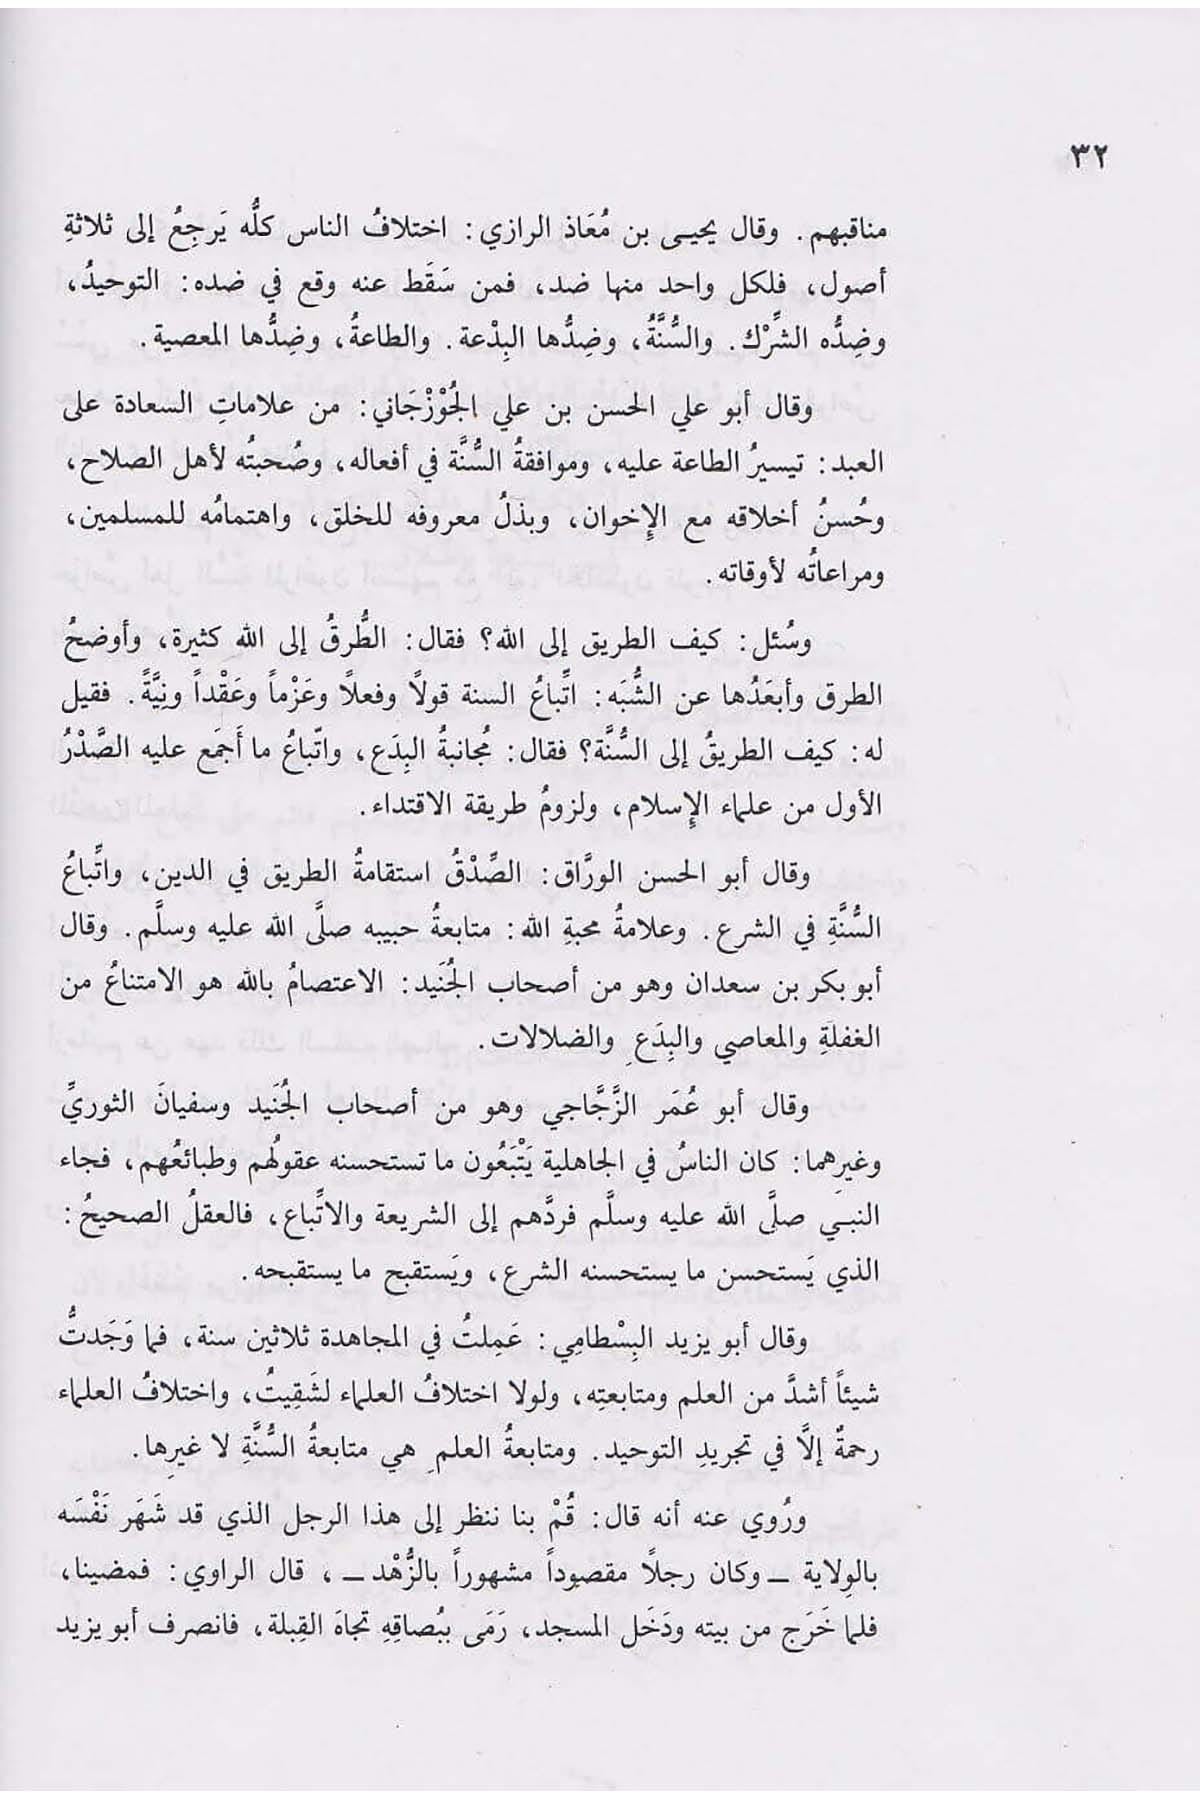 ٣٢
مناقبهم. وقال يحيى بن مُعَاذ الرازي: اختلافُ الناس كلُّه يَرجِعُ إلى ثلاثةِ
أصول، فلِكل واحد منها ضد، فمن سَقَط عنه وقع في ضده: التوحيدُ،
وضِدُّه الشِّرْك. والسُّنَّةُ، وضِدُّها البِدْعة. والطاعةُ، وضِدُّها المعصية.
وقال أبو علي الحسن بن علي الجُوْزْجَاني: من علاماتِ السعادة على
العبد: تيسيرُ الطاعة عليه، وموافقةُ السُّنَّة في أفعاله، وصُحبتُه لأهل الصلاح،
وحُسنُ أخلاقه مع الإِخوان، وبذلُ معروفه للخلق، واهتمامُه للمسلمين،
ومراعاتُه لأوقاته.
وسُئل: كيف الطريق إلى الله؟ فقال: الطُّرقُ إلى الله كثيرة، وأوضحُ
الطرق وأبعَدُها عن الشُّبَه: اتِّباعُ السنة قولاً وفعلاً وعَزْماً وعَقْداً ونِيَّةً. فقيل
له: كيف الطريقُ إلى السُّنَّة؟ فقال: مُجانبةُ البِدَع، واتّباعُ ما أَجمَع عليه الصَّدْرُ
الأول من علماء الإِسلام، ولزومُ طريقة الاقتداء.
وقال أبو الحسن الورَّاق: الصِّدْقُ استقامةُ الطريق في الدين، واتِّباعُ
السُّنَّةِ في الشرع. وعلامةُ محبةِ الله: متابعةُ حبيبه صلَّى الله عليه وسلَّم. وقال
أبو بكر بن سعدان وهو من أصحاب الجُنَيد: الاعتصامُ بالله هو الامتناعُ من
الغفلَةِ والمعاصي والبِدَعِ والضلالات.
وقال أبو عُمَر الزَّجَّاجي وهو من أصحاب الجُنَيد وسفيانَ الثوريِّ
وغيرِهما: كان الناسُ في الجاهلية يَتْبَعُون ما تستحسنه عقولُهم وطبائعُهم، فجاء
النبي صلَّى الله عليه وسلَّم فردَّهم إلى الشريعة والاتِّباع، فالعقلُ الصحيحُ:
الذي يَستحسن ما يستحسنه الشرع، ويَستقبح ما يستقبحه.
وقال أبو يزيد البِسْطامِي: عَمِلتُ في المجاهدة ثلاثين سنة، فما وَجَدتُّ
شيئاً أشدَّ من العلم ومتابعتِه، ولولا اختلافُ العلماء لشَقِيتُ، واختلافُ العلماء
رحمةٌ إلاَّ في تجريدِ التوحيد. ومتابعةُ العلمِ هي متابعةُ السُّنَّةِ لا غيرِها.
ورُوي عنه أنه قال: قُمْ بنا ننظر إلى هذا الرجل الذي قد شَهَر نَفْسَه
بالوِلاية ــ وكان رجلاً مقصوداً مشهوراً بالزُّهْد ــ، قال الراوي: فمضينا،
فلما خَرَج من بيته ودَخَل المسجد، رَمَى ببُصاقِهِ تجاهَ القِبلة، فانصرف أبو يزيد